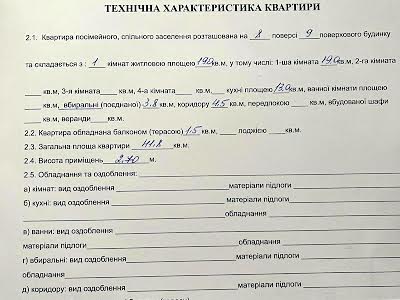 ТЕХНІЧНА ХАРАКТЕРИСТИКА КВАРТИРИ
2.1. Квартира посімейного, спільного заселення розташована на 8 поверсі 9 поверхового будинку
та складається з : 1 кімнат житловою площею 19,0 кв.м, у тому числі: 1-ша кімната 19,0 кв.м, 2-га кімната
____ кв.м, 3-я кімната____ кв.м, 4-а кімната ____ кв.м,____ кухні площею 13,0 кв.м, ванної кімнати площею
____ кв.м, вбиральні (поєднаної) 3,8 кв.м, коридору 4,5 кв.м, передпокою ____ кв.м, вбудованої шафи
____ кв.м, веранди ____ кв.м.
2.2. Квартира обладнана балконом (терасою) 1,5 кв.м, ____ лоджією ____ кв.м.
2.3. Загальна площа квартири 41,8 кв.м
2.4. Висота приміщень 2,70 м.
2.5. Обладнання та оздоблення:
а) кімнат: вид оздоблення матеріали підлоги
б) кухні: вид оздоблення матеріали підлоги
обладнання
в) ванни: вид оздоблення
матеріали підлоги обладнання
г) вбиральні: вид оздоблення матеріали підлоги
обладнання
д) коридору: вид оздоблення матеріали підлоги